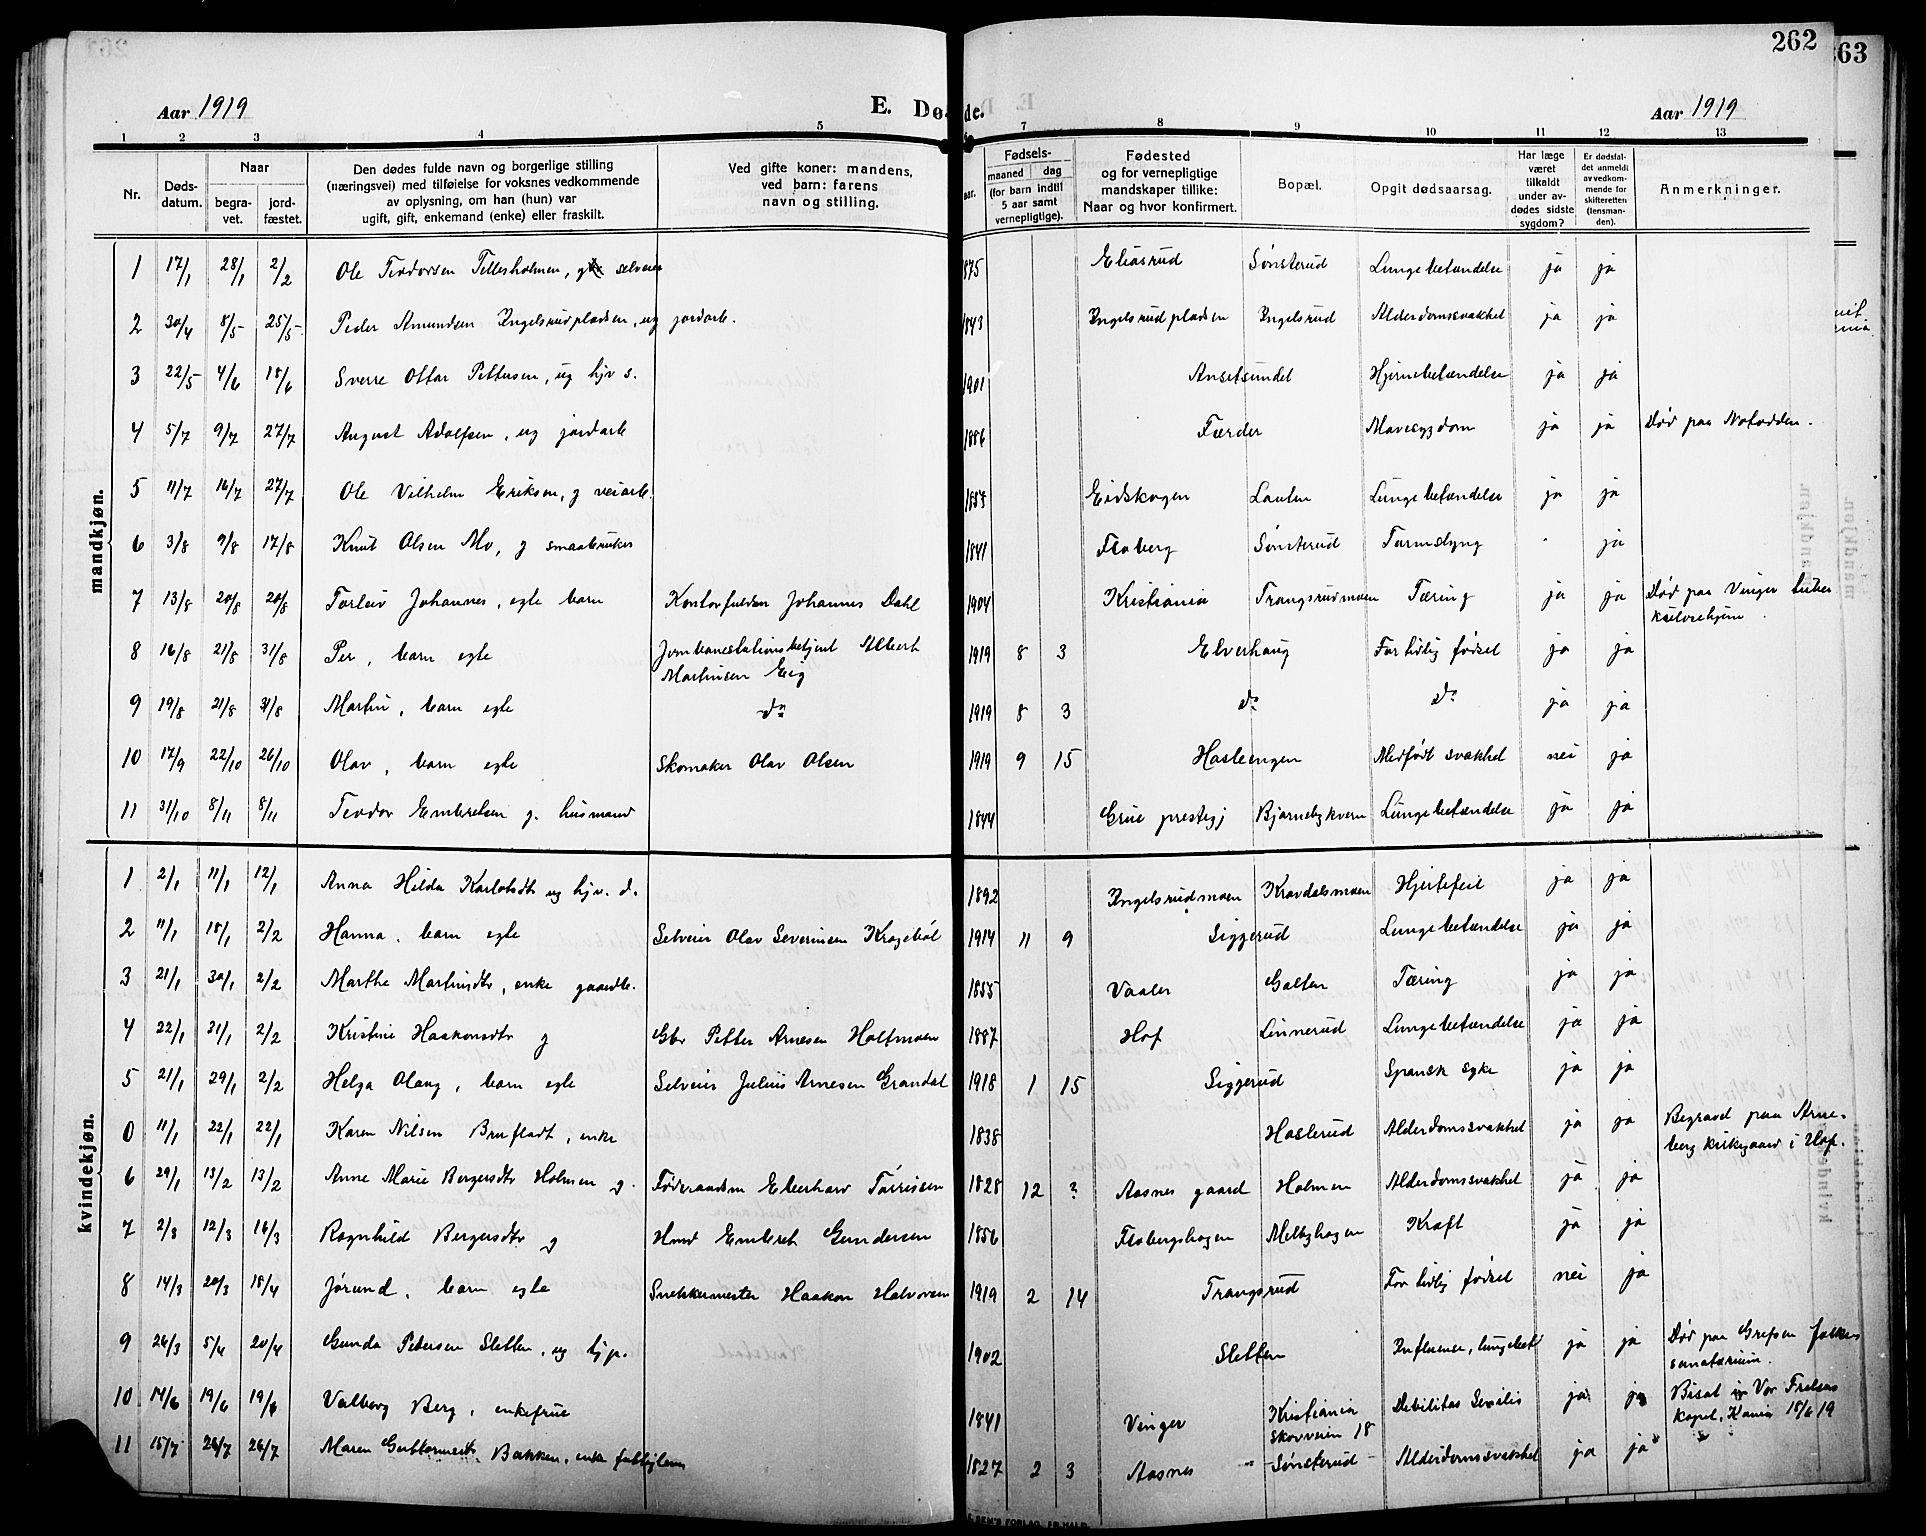 262
263
Aar 1919
E. Døde.
Aar 1919
1 2 3 4 5 7 8 9 10 11 12 13
Nr.
Døds-
datum.
Naar
begra-
vet.
jord-
fæstet.
Den dødes fulde navn og borgerlige stilling
(næringsvei) med tilføielse for voksnes vedkommende
av oplysning, om han (hun) var
ugift, gift, enkemand (enke) eller fraskilt.
Ved gifte koner: mandens,
ved barn: farens
navn og stilling.
aar.
Fødsels-
maaned dag
(for barn indtil
5 aar samt
vernepligtige).
Fødested
og for vernepligtige
mandskaper tillike:
Naar og hvor konfirmert.
Bopæl.
Opgit dødsaarsag.
Har læge
været
tilkaldt
under av-
dødes sidste
sygdom?
Er dødsfal-
det anmeldt
av vedkom-
mende for
skifteretten
(lensman-
den).
Anmerkninger.
mandkjøn.
1 17/1 28/1 2/2 Ole Teodorsen Tellesholmen, selveier 1875 Eliasrud Sønsterud Lungebetændelse ja ja
2 30/4 8/5 25/5 Peder Amundsen Ingelsrudpladsen, ug jordarb. 1843 Ingelsrudpladsen Ingelsrud Alderdomssvakhet ja ja
3 22/5 4/6 18/6 Sverre Ottar Pettersen, ug hjv s. 1901 Ansetsundet Hjernebetændelse ja ja
4 5/7 9/7 27/7 August Adolfsen, ug jordarb 1886 Færder Mavesygdom ja ja Død paa Notodden.
5 11/7 16/7 27/7 Ole Vilhelm Eriksen, g veiarb. 1853 Eidskogen Lauten Lungebetændelse ja ja
6 3/8 9/8 17/8 Knut Olsen Mo, g smaabruker 1841 Flaberg Sønsterud Tarmslyng - ja
7 13/8 20/8 20/8 Torleiv Johannes, egte barn Kontorfuldm Johannes Dahl 1904 Kristiania Trangsrudmoen Tæring ja ja Død paa Vinger tuber
kulosehjem.
8 16/8 21/8 31/8 Per, barn egte Jernbanestationsbetjent Albert
Martinsen Eig 1919 8 3 Elverhaug For tidlig fødsel ja ja
9 19/8 21/8 31/8 Martin, barn egte do 1919 8 3 do do ja ja
10 17/9 22/10 26/10 Olav, barn egte Skomaker Olav Olsen 1919 9 15 Hasleengen Medfødt svakhet nei ja
11 31/10 8/11 8/11 Teodor Embretsen g. husmand 1844 Grue prestegj Bjørnebykvern Lungebetændelse ja ja
kvindekjøn.
1 2/1 11/1 12/1 Anna Hilda Karlsdtr ug hjv. d. 1892 Ingelsrudmoen Kravdalsmoen Hjertefeil ja ja
2 11/1 18/1 2/2 Hanna, barn egte Selveier Olav Severinsen Kragebøl 1914 11 9 Siggerud Lungebetændelse ja ja
3 21/1 30/1 2/2 Marthe Martinsdtr, enke gaardbr. 1855 Vaaler Galten Tæring ja ja
4 22/1 31/1 2/2 Kristine Haakonsdtr g Gbr Petter Arnesen Holtmoen 1887 Hof Linnerud Lungebetændelse ja ja
5 21/1 29/1 2/2 Helga Olaug, barn egte Selveier Julius Arnesen Grandal 1918 1 15 Siggerud Spansk syke ja ja
0 11/1 22/1 22/1 Karen Nilsen Brufladt, enke 1838 Haslerud Alderdomssvakhet ja ja Begravd paa Arne-
berg kirkegaard i Hof.
6 29/1 13/2 13/2 Anne Marie Bergersdtr Holmen g. Føderaadsm Eberhard Tørrisen 1828 12 ? Aasnes gaard Holmen Alderdomssvakhet ja ja
7 2/3 12/3 16/3 Ragnhild Bergersdtr g Hmd Embret Gundersen 1856 Flabergshagen Melbyhagen Kræft ja ja
8 14/3 20/3 18/4 Jørund, barn egte Snekkermester Haakon Halvorsen 1919 2 14 Trangsrud For tidlig fødsel nei ja
9 26/3 5/4 20/4 Gunda Petersen Sletten, ug hjp. 1902 Sletten Influense, lungebet ja ja Død paa Grefsen folke
sanatorium.
10 14/6 19/6 19/6 Valborg Berg, enkefrue 1841 Vinger Kristiania
Skovveien 18 Debilitas Senilis ja ja Bisat i Vor Frelsers
kapel, Kania 18/6 19
11 15/7 26/7 26/7 Maren Guttormsdtr Bakken, enke fattiglem 1827 2 3 Aasnes Sønsterud Alderdomssvakhet ja ja